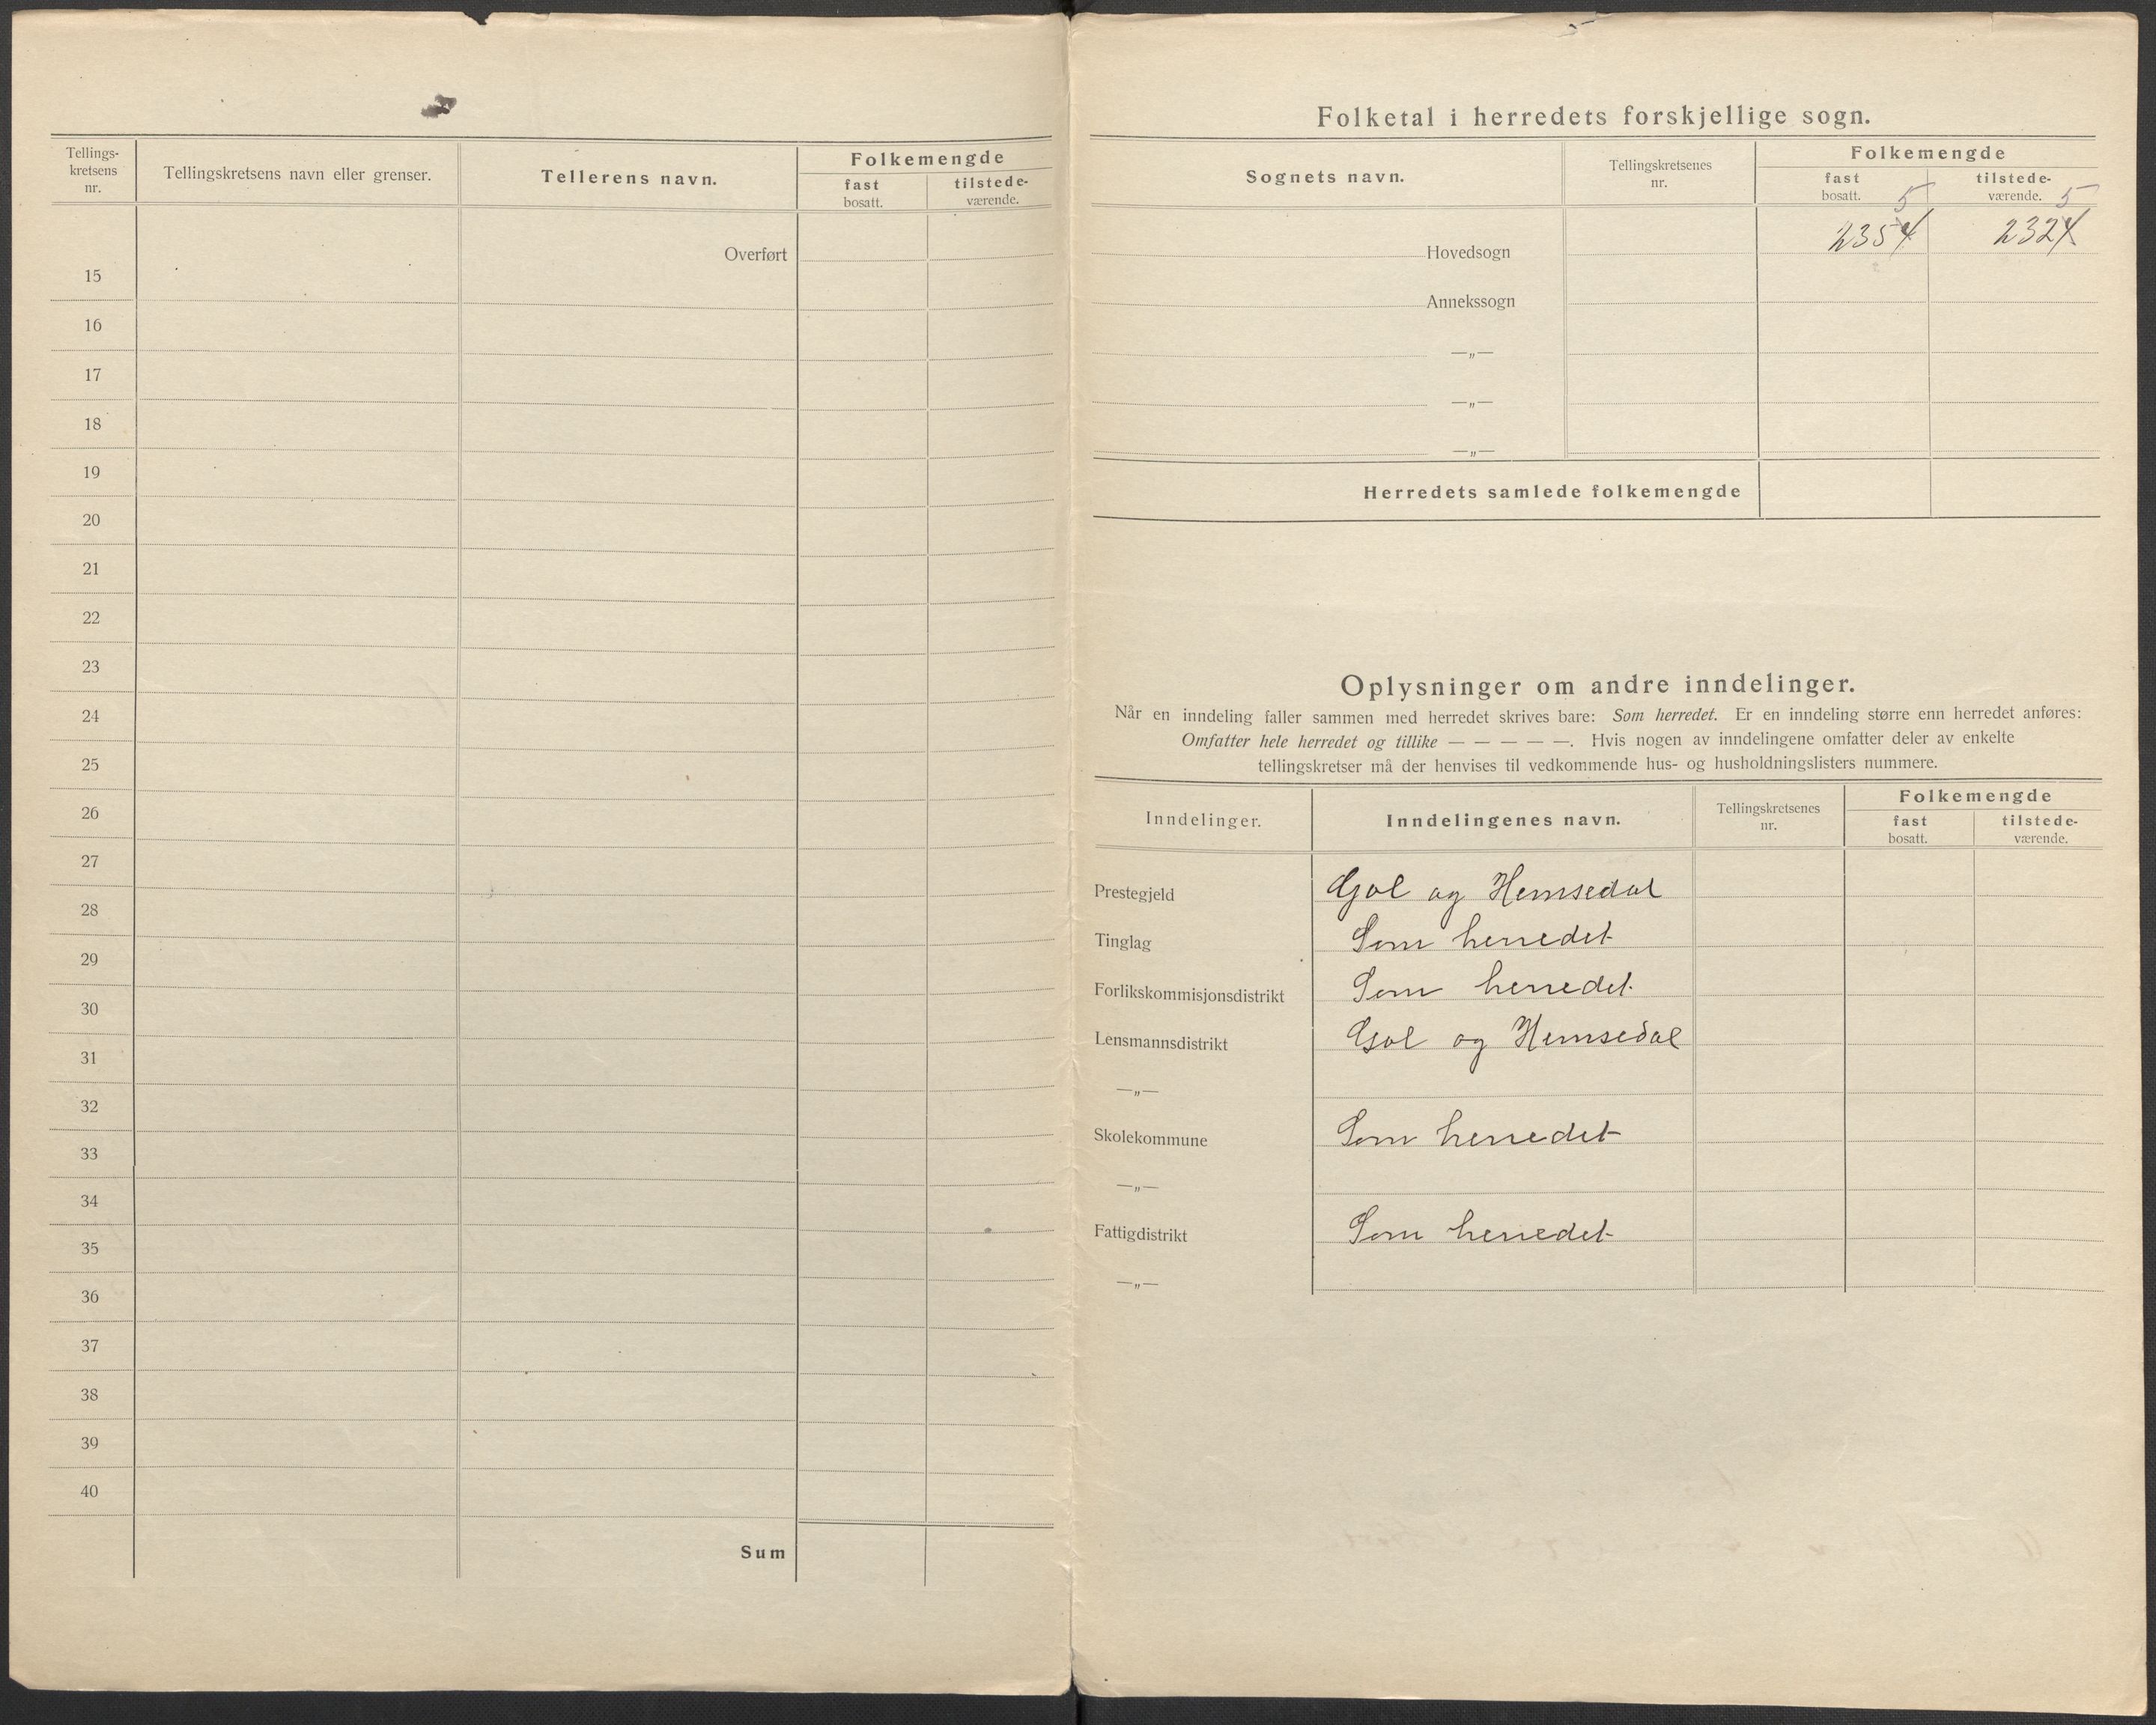 Tellings-
kretsens
nr.
Tellingskretsens navn eller grenser.
Tellerens navn.
Folkemengde
fast
bosatt.
tilstede-
værende.
Overført
15
16
17
18
19
20
21
22
23
24
25
26
27
28
29
30
31
32
33
34
35
36
37
38
39
40
Sum
5
Folketal i herredets forskjellige sogn.
Sognets navn.
Tellingskretsenes
nr.
Folkemengde
fast
bosatt.
tilstede-
værende.
5 5
Hovedsogn 2354 2324
Annekssogn
—„—
—„—
—„—
Herredets samlede folkemengde
Oplysninger om andre inndelinger.
Når en inndeling faller sammen med herredet skrives bare: Som herredet. Er en inndeling større enn herredet anføres:
Omfatter hele herredet og tillike — — — — —. Hvis nogen av inndelingene omfatter deler av enkelte
tellingskretser må der henvises til vedkommende hus- og husholdningslisters nummere.
Inndelinger.
Inndelingenes navn.
Tellingskretsenes
nr.
Folkemengde
fast
bosatt.
tilstede-
værende.
Prestegjeld Gol og Hemsedal
Tinglag Som herredet
Forlikskommisjonsdistrikt Som herredet.
Lensmannsdistrikt Gol og Hemsedal
—„—
Skolekommune Som herredet
—„—
Fattigdistrikt Som herredet
—„—